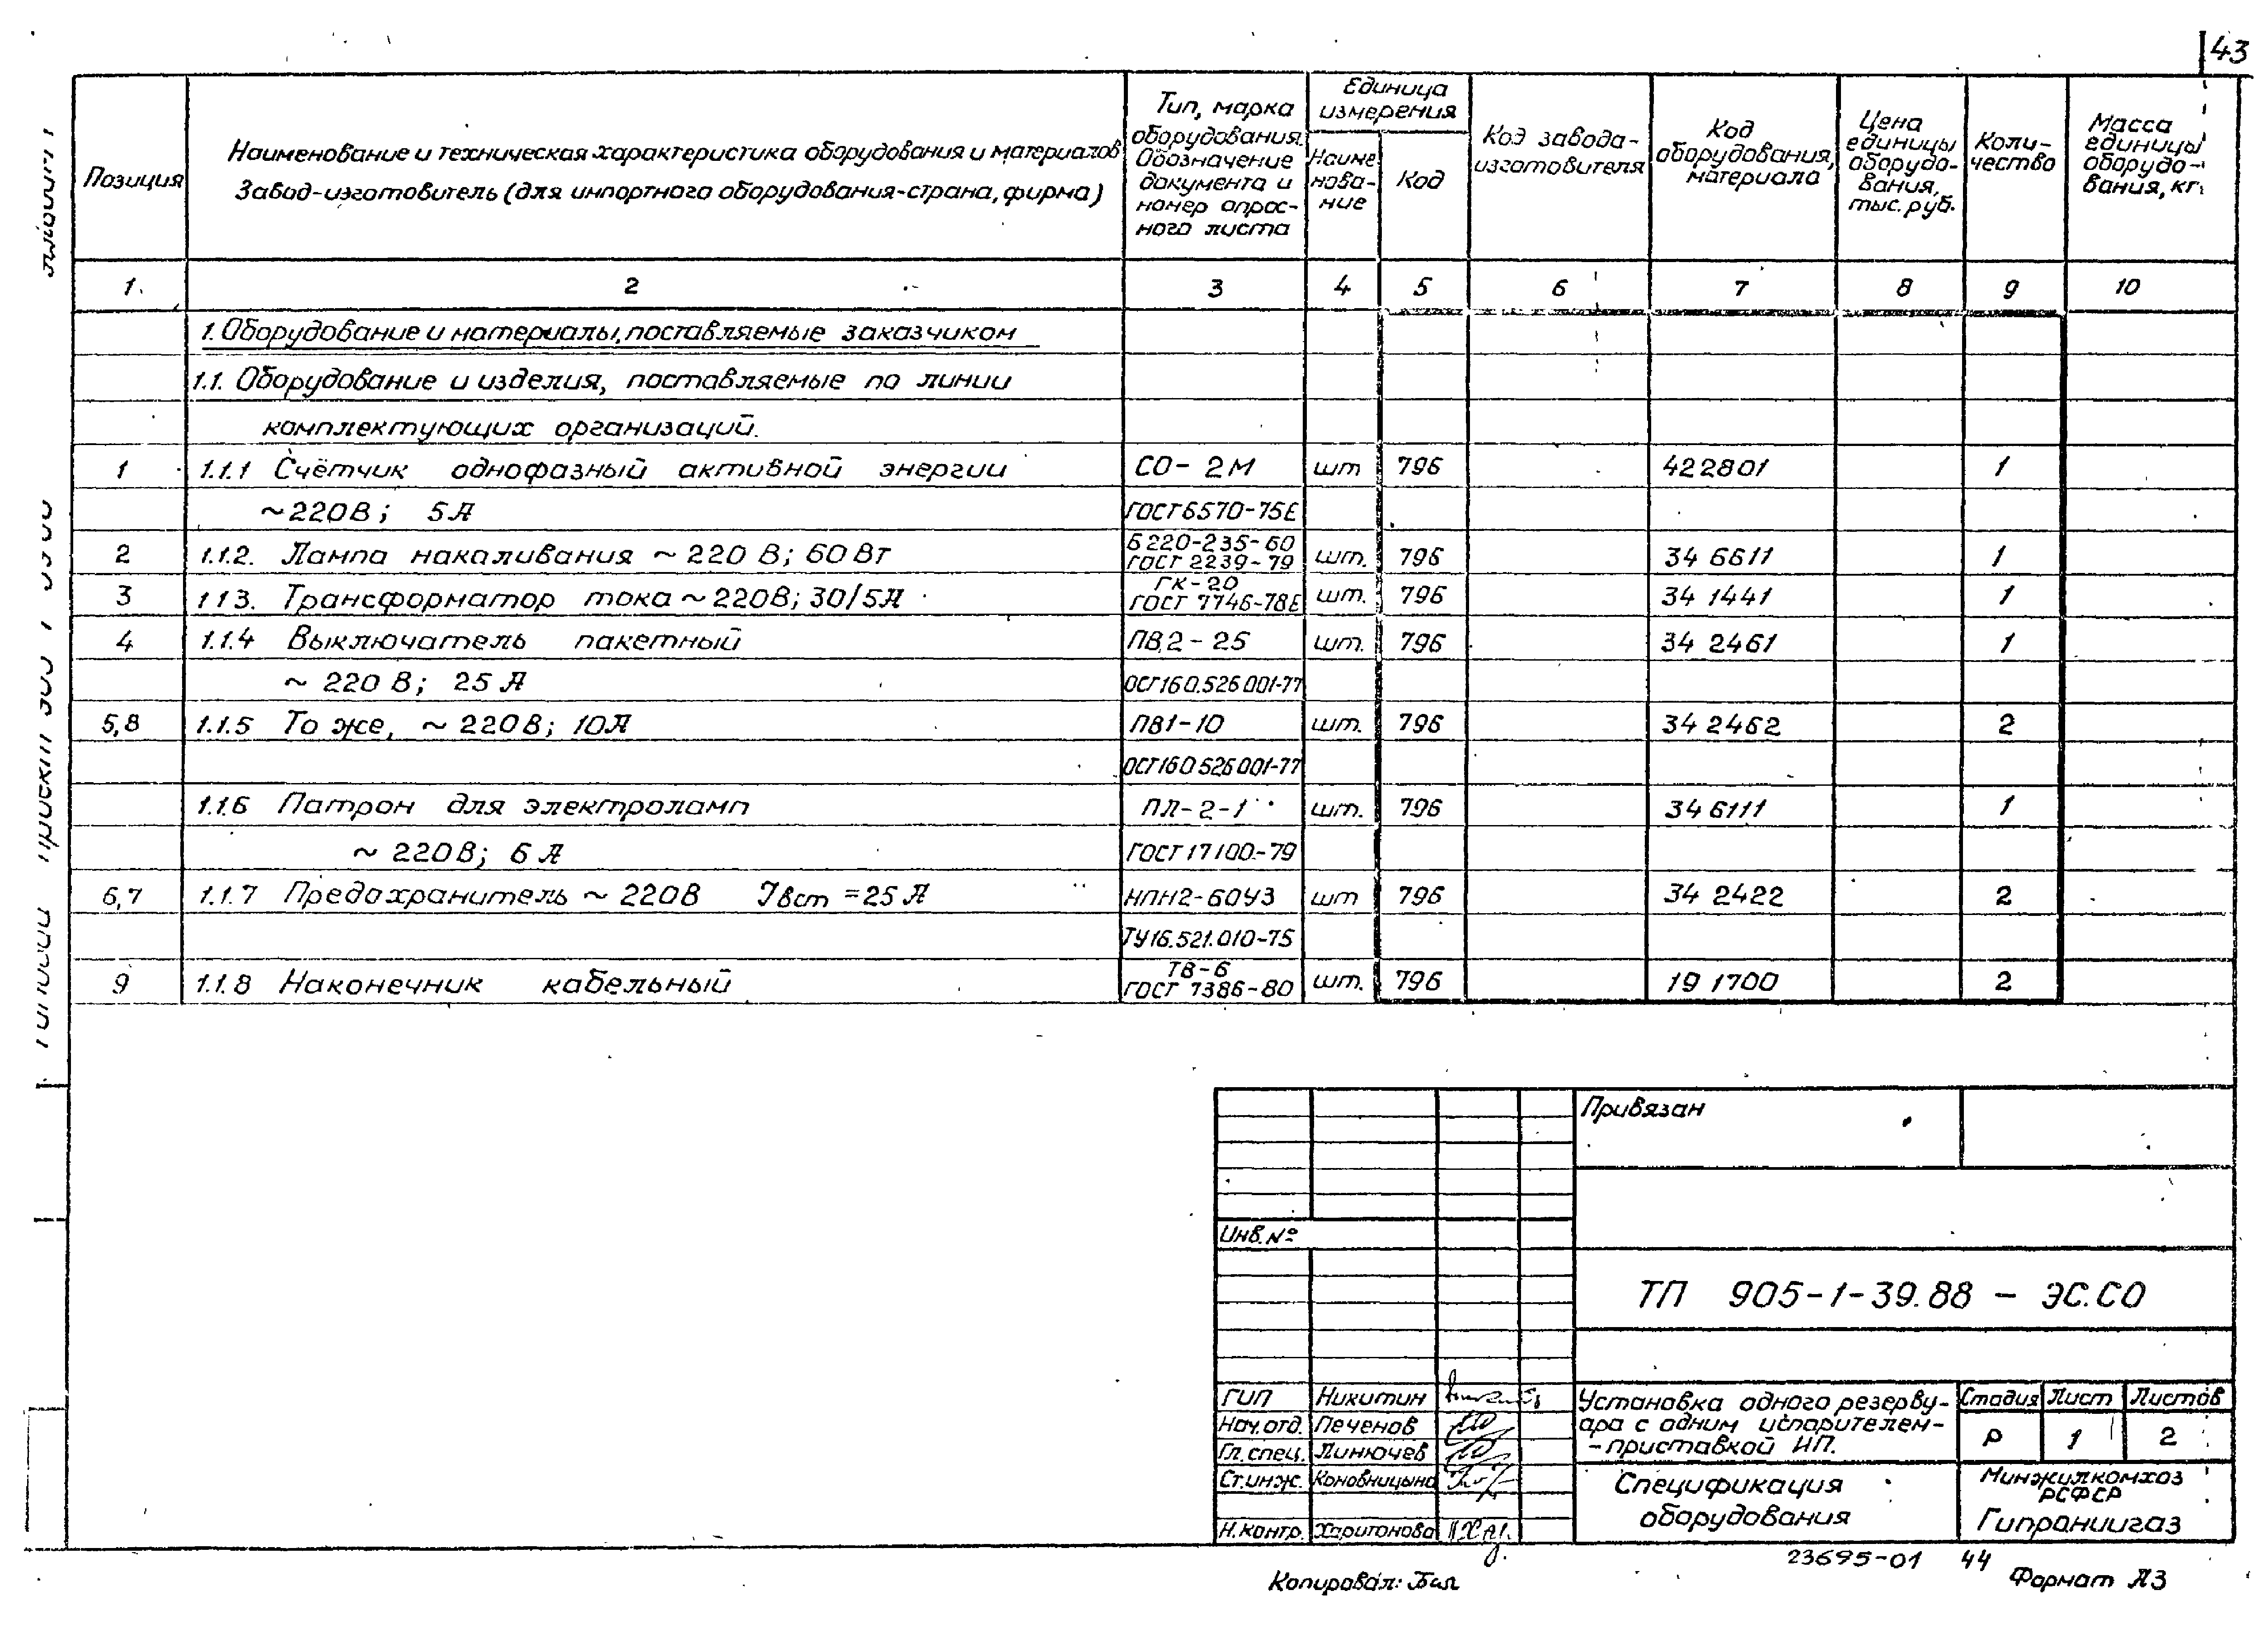 43
Позиция
Наименование и техническая характеристика оборудования и материалов
Завод-изготовитель (для импортного оборудования-страна, фирма)
Тип, марка
оборудования.
Обозначение
документа и
номер опрос-
ного листа
Единица
измерения
Наиме
нова-
ние
Код
Код завода-
изготовителя
Код
оборудования,
материала
Цена
единицы
оборудо-
вания,
тыс. руб.
Коли-
чество
Масса
единицы
оборудо-
вания, кг
1 2 3 4 5 6 7 8 9 10
1. Оборудование и материалы, поставляемые заказчиком
1.1. Оборудование и изделия, поставляемые по линии
комплектующих организаций.
1 1.1.1 Счётчик однофазный активной энергии СО-2М шт 796 422801 1
~220В; 5А ГОСТ 6570-75Е
2 1.1.2. Лампа накаливания ~ 220 В; 60 Вт Б220-235-60 ГОСТ 2239-79 шт. 796 34 6611 1
3 1 1 3. Трансформатор тока ~ 220В; 30/5А ТК-20 ГОСТ 7746-78Е шт. 796 34 1441 1
4 1.1.4 Выключатель пакетный ПВ2-25 шт. 796 34 2461 1
~ 220 В; 25 А ОСТ 16 0.526 001-77
5,8 1.1.5 То же, ~ 220В; 10А ПВ1-10 шт. 796 34 2462 2
ОСТ 16 0 526 001-77
1.1.6 Патрон для электроламп ПЛ-2-1 шт. 796 34 6111 1
~ 220В; 6 А ГОСТ 17100-79
6,7 1.1.7 Предохранитель ~ 220В Iвст = 25 А НПН2-60У3 шт 796 34 2422 2
ТУ16.521.010-75
9 1.1.8 Наконечник кабельный ТВ-6 ГОСТ 7386-80 шт. 796 19 1700 2
Привязан
Инв. №
ТП 905-1-39.88 - ЭС.СО
ГИП Никитин
Нач. отд. Печенов
Гл. спец. Линючев
Ст. инж. Коновницына
Н. контр. Харитонова
Установка одного резерву-
ара с одним испарителем-
-приставкой ИП.
Стадия Лист Листов
Р 1 2
Спецификация
оборудования
Минжилкомхоз
РСФСР
Гипрониигаз
23695-01 44
Копировал:
Формат А3